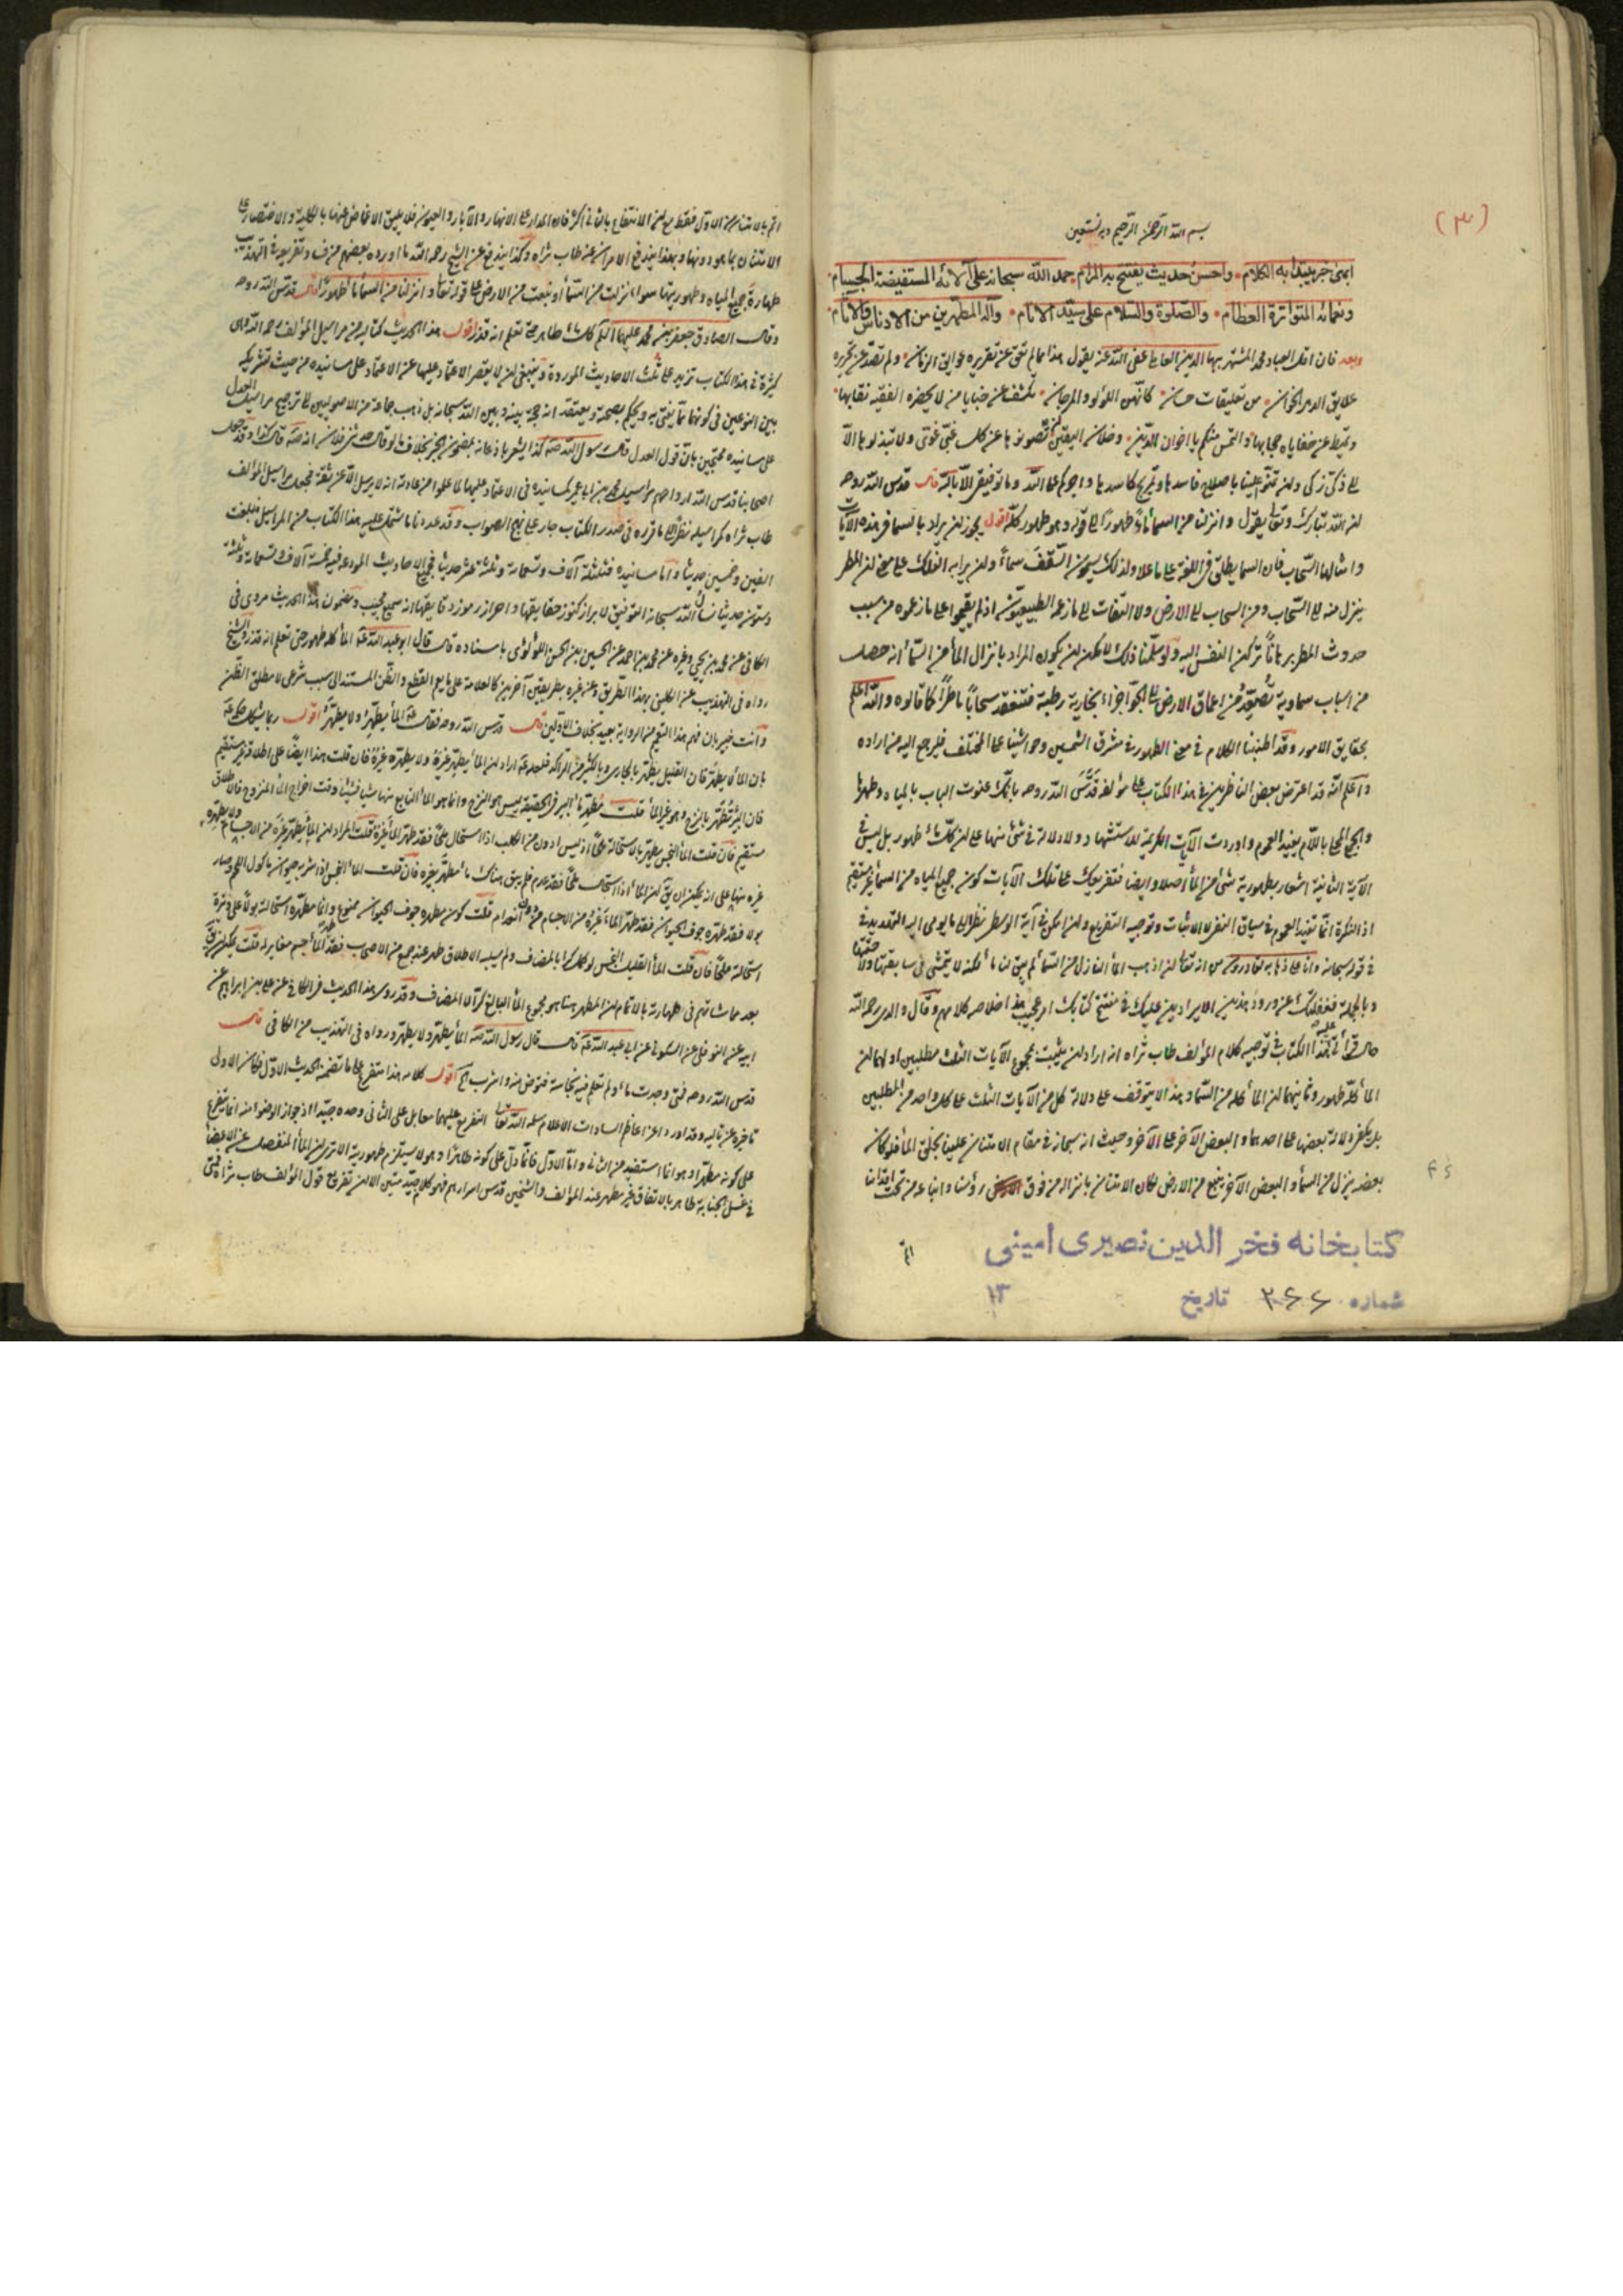 (٣)
بسم الله الرحمن الرحيم وبه نستعين
ابهى خبر يبتدأ به الكلام واحسن حديث يفتتح به المرام حمد الله سبحانه على آلائه المستفيضة الجسام
ونعمائه المتواترة العظام والصلوة والسلام على سيد الانام وآله المطهرين من الادناس والآثام
وبعد فان اقل العباد محمد المشتهر ببهاء الدين العاملي عفى الله عنه يقول هذا ما لم تعق عن تقريره عوايق الزمان ولم تصد عن تحريره
علايق الدهر الخوان من تعليقات حسان كانهن اللؤلؤ والمرجان تكشف عن خبايا من لا يحضره الفقيه نقابها
وتميط عن خفاياه حجابها والتمس منكم يا اخوان الدين وخلان اليقين ان تصونوها عن كل غبي غوي ولا تبذلوها الا
الى ذكي زكي وان تمنوا علينا باصلاح فاسدها وترويج كاسدها واجركم على الله وما توفيقي الا بالله قال قدس الله روحه
ان الله تبارك وتعالى يقول وانزلنا من السماء ماء طهورا الى قوله وهو طهور كله اقول يجوز ان يراد بالسماء في هذه الآيات
وامثالها السحاب فان السماء يطلق في اللغة على ما علا ولذلك يسمون السقف سماء وان يراد به الفلك على معنى ان المطر
ينزل منه الى السحاب ومن السحاب الى الارض ولا التفات الى ما زعمه الطبيعيون اذ لم يقيموا على ما زعموه من سبب
حدوث المطر برهانا تركن النفس اليه ولو سلمنا ذلك لامكن ان يكون المراد بانزال الماء من السماء انه حصل
من اسباب سماوية تصعد من اعماق الارض الى الجو اجزاء بخارية رطبة فتنعقد سحابا ماطرا كما قالوه والله اعلم
بحقايق الامور وقد اطنبنا الكلام في معنى الطهور في مشرق الشمسين وحواشينا على المختلف فليرجع اليه من اراده
واعلم انه قد اعترض بعض الناظرين في هذا الكتاب على مؤلفه قدس الله روحه بانك عنونت الباب بالمياه وطهرها
والجمع المحلى باللام يفيد العموم واوردت الآيات الكريمة للاستشهاد ولا دلالة في شئ منها على ان كل ماء طهور بل ليس في
الآية الثانية اشعار بطهورية شئ من الماء اصلا وايضا فتفريعك على تلك الآيات كون جميع المياه من السماء غير مستقيم
اذ النكرة انما تفيد العموم في سياق النفي لا الاثبات وتوجيه التفريع وان امكن في آية الوسطى نظرا الى ما يومي اليه التهديد في
في قوله سبحانه وانا على ذهاب به لقادرون من انه تعالى ان اذهب الماء النازل من السماء لم يبق لنا ماء لكنه لا يتمشى في سابقتها ولا حقتها
وبالجملة فغفلتك عن ورود هذين الايرادين عليك في مفتتح كتابك امر عجيب هذا خلاصة كلامهم وقال والدي رحمه الله
حال قرأتي عليه هذا الكتاب في توجيه كلام المؤلف طاب ثراه انه اراد ان يثبت بمجموع الآيات الثلث مطلبين اولهما ان
الماء كله طهور وثانيهما ان الماء كله من السماء وهذا لا يتوقف على دلالة كل من الآيات الثلث على كل واحد من المطلبين
بل يكفي دلالة بعضها على احدهما والبعض الآخر على الآخر وحيث انه سبحانه في مقام الامتنان علينا بخلق الماء فلو كان
بعضه ينزل من السماء والبعض الآخر ينبع من الارض لكان الامتنان بانزاله من فوق رؤسنا وانباعه من تحت اقدامنا
كتابخانه فخر الدين نصيرى امينى
شماره ٢٤٤ تاريخ ١٣
اتم بالامتنان من الاول فقط مع ان الانتفاع بالثاني اكثر فان المدار على الانهار والآبار والعيون فلا يليق الاغماض عنها بالكلية والاقتصار على
الامتنان بما هو دونها وبهذا يندفع الامران عنه طاب ثراه وكذا يندفع عن الشيخ رحمه الله ما اورده بعضهم من تفريعه في التهذيب
طهارة جميع المياه وطهوريتها سواء نزلت من السماء او نبعت من الارض على قوله تعالى وانزلنا من السماء ماء طهورا قال قدس الله روحه
وقال الصادق جعفر بن محمد عليهما السلام كل ماء طاهر حتى تعلم انه قذر اقول هذا الحديث كتاليه من مراسيل المؤلف رحمه الله وهي
كثيرة في هذا الكتاب تزيد على ثلث الاحاديث الموردة وينبغي ان لا يقصر الاعتماد عليها عن الاعتماد على مسانيده من حيث تشريكه
بين النوعين في كونهما مما يفتي به ويحكم بصحته ويعتقد انه حجة بينه وبين الله سبحانه بل ذهب جماعة من الاصوليين الى ترجيح مراسيل العدل
على مسانيده محتجين بان قول العدل قال رسول الله صلى الله عليه وآله كذا يشعر باذعانه بمضمون الخبر بخلاف ما لو قال حدثني فلان عن فلان انه قال كذا وقد جعل
اصحابنا قدس الله ارواحهم مراسيل محمد بن ابي عمير كمسانيده في الاعتماد عليها لما علموا من عادته انه لا يرسل الا عن ثقة فجعل مراسيل المؤلف
طاب ثراه كمراسيله نظرا الى ما قرره في صدر الكتاب جار على نهج الصواب وقد عددنا ما اشتمل عليه هذا الكتاب من المراسيل فبلغت
الفين وخمسين حديثا واما مسانيده فثلثة آلاف وتسعمائة وثلثة عشر حديثا فجميع الاحاديث المودعة فيه خمسة آلاف وتسعمائة وثلثة
وستون حديثا نسال الله سبحانه التوفيق لابراز كنوز حقايقها واحراز رموز دقايقها انه سميع مجيب ومضمون هذا الحديث مروي في
الكافي عن محمد بن يحيى وغيره عن محمد بن احمد عن الحسن بن الحسين اللؤلؤي باسناده قال قال ابو عبد الله الماء كله طهور حتى تعلم انه قذر والشيخ
رواه في التهذيب عن الكليني بهذا الطريق وعن غيره بطريقين آخرين
وانت خبير بان فهم هذا التعميم من الرواية بعيد بخلاف الاولين قال قدس الله روحه فقال الماء يطهر ولا يطهر اقول
بان الماء يطهر فان القليل يطهر بالجاري وبالكثير من الراكد فلعله اراد ان الماء يطهر غيره ولا يطهره غيره فان قلت هذا ايضا على اطلاقه غير مستقيم
فان البئر تطهر بالنزح وهو غير الماء قلت مطهر ماء البئر في الحقيقة ليس هو النزح وانما هو الماء النابع منها شيئا فشيئا وقت اخراج الماء المنزوح
مستقيم فان قلت الماء النجس يطهر بالاستحالة ملحا اذ ليس ادون من الكلب اذا استحال ملحا فقد طهر الماء غيره قلت المراد ان الماء يطهر غيره
بولا فقد طهره جوف الحيوان فقد طهر الماء غيره من الاجسام من دون انعدام قلت كون مطهره جوف الحيوان ممنوع وانما مطهره استحالته بولا على وتيرة
استحالته ملحا فان قلت الماء القليل النجس لو كمل كرا بالمضاف ولم يسلبه الاطلاق طهر عند جمع من الاصحاب
بعد مماشاتهم في طهارته بالاتمام ان المطهر هنا هو مجموع الماء البالغ كرا لا المضاف وقد روى هذا الحديث في الكافي عن علي بن ابراهيم عن
ابيه عن النوفلي عن السكوني عن ابي عبد الله قال قال رسول الله الماء يطهر ولا يطهر ورواه في التهذيب من الكافي قال
قدس الله روحه فمتى وجدت ماء ولم تعلم فيه نجاسة فتوضأ منه واشرب اقول كلامه هذا متفرع على ما تضمنه الحديث الاول